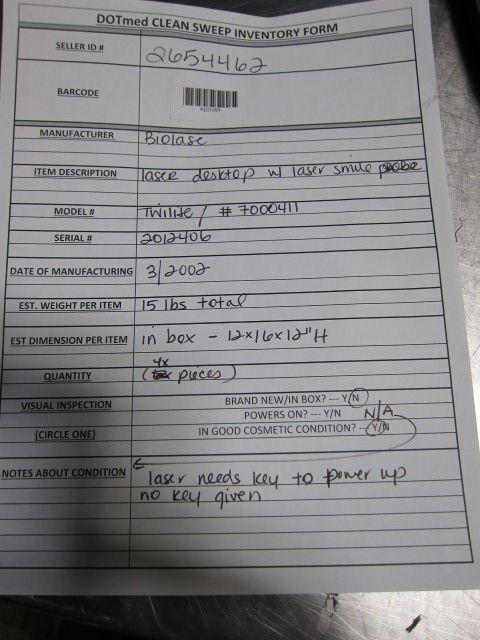 DOTmed CLEAN SWEEP INVENTORY FORM
SELLER ID # 2654462
BARCODE
MANUFACTURER Biolase
ITEM DESCRIPTION laser desktop w/ laser smile probe
MODEL # Twilite / # 7000411
SERIAL # 2012406
DATE OF MANUFACTURING 3/2002
EST. WEIGHT PER ITEM 15 lbs total
EST DIMENSION PER ITEM in box - 12x16x12"H
QUANTITY (4x pieces)
VISUAL INSPECTION BRAND NEW/IN BOX? --- Y/N
POWERS ON? --- Y/N N/A
(CIRCLE ONE) IN GOOD COSMETIC CONDITION? -- Y/N
NOTES ABOUT CONDITION laser needs key to power up
no key given